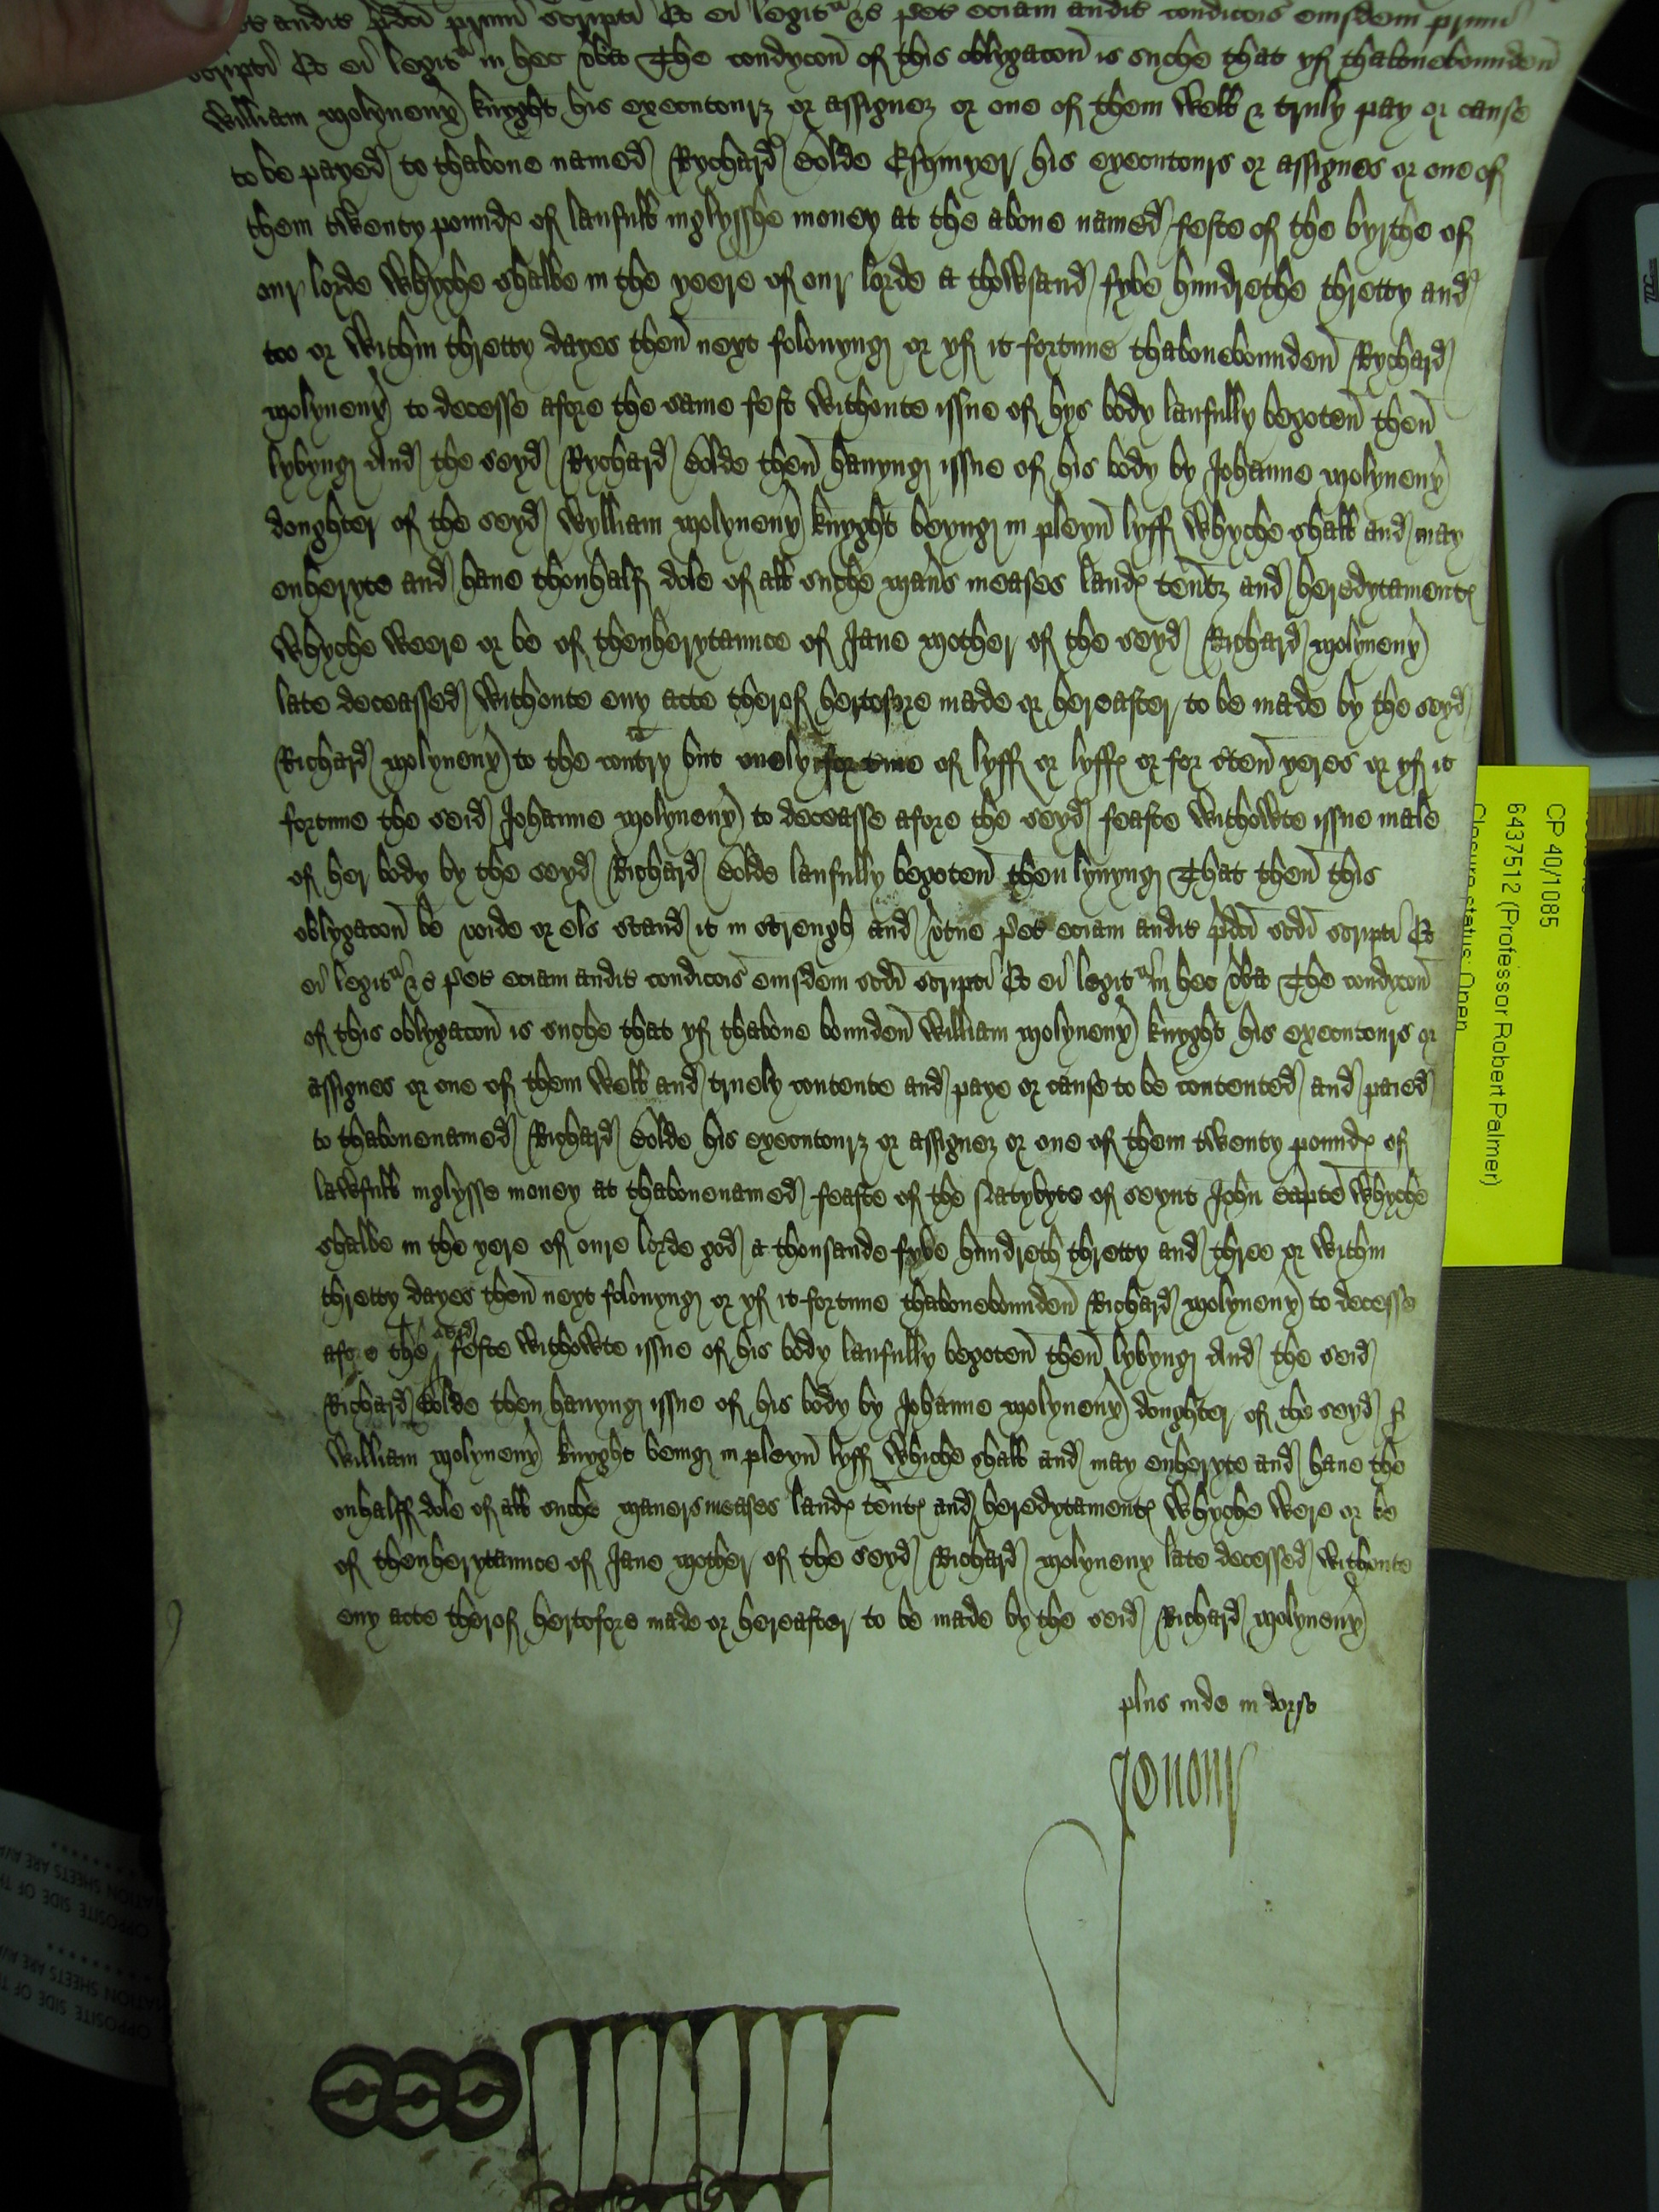 audit p̄dc̄i primi scripti Et ei legitr &c Pet eciam audit condicois eiusdem primi
scripti Et ei legitr in hec v̄ba The condycon̄ of this oblygacon̄ is suche that yf thabovebounden̄
William Molyneux knyght his executourz or assignez or one of them well & truly pay or cause
to be payed to thabove named Rychard Bolde Esquyer his executours or assignes or one of
them twenty pound of laufull inglysshe money at the above named feste of the byrthe of
our lorde whyche shalbe in the yeere of our lorde a thowsand fyve hundrethe thretty and
too or within thretty dayes then̄ next folouyng or yf it fortune thabovebounden̄ Rychard
Molyneux to decesse afore the same fest withoute issue of hys body laufully begoten̄ then̄
lyvyng And the seyd Rychard Bolde then̄ havyng issue of his body by Johanne Molyneux
doughter of the seyd Wylliam Molyneux knyght beyng in pleyn̄ lyff whyche shall and may
enheryte and have thonhalf dole of all suche man̄s meases land ten̄tz and heredytament
whyche weere or be of thenherytaunce of Jane mother of the seyd Richard Molyneux
late deceassed withoute eny acte therof hertofore made or hereafter to be made by the seyd
Richard Molyneux to the contry but onely for tme of lyff or lyff or for c̄ten̄ yeres or yf it
fortune the seid Johanne Molyneux to deceasse afore the seyd feaste withowte issue male
of her body by the seyd Richard Bolde laufully begoten̄ then lyvyng That then̄ this
oblygacon̄ be voide or els stand it in strengh and v̄tue Pet eciam audit p̄dc̄i scd̄i scripti Et
ei legitr &c Pet eciam audit condicois eiusdem scd̄i scripti Et ei legitr in hec v̄ba The condycon̄
of this oblygacon̄ is suche that yf thabove bounden̄ William Molyneux knyght his executours or
assignes or one of them well and truely contente and paye or cause to be contented and paied
to thabovenamed Richard Bolde his executourz or assignez or one of them twenty pound of
lawfull inglysse money at thabovenamed feaste of the Natyvyte of seynt John Bapte whyche
shalbe in the yere of oure lorde god a thousande fyve hundreth thretty and three or within
thretty dayes then̄ next folouyng or yf it fortune thabovebounden̄ Richard Molyneux to decesse
afore the seyd feste withowte issue of his body laufully begoten̄ then̄ lyvyng And the seid
Richard Bolde then havyng issue of his body by Johanne Molyneux doughter of the seyd
William Molyneux knyght beinge in pleyn̄ lyff whiche shall and may enheryte and have the
onhalff dole of all suche maners meases land ten̄t and heredytament whyche were or be
of thenherytaunce of Jane mother of the seyd Richard Molyneux late decessed withoute
eny acte therof hertofore made or hereafter to be made by the seid Richard Molyneux
plus inde in dorso
Jenour
CP 40/1085
6437512 (Professor Robert Palmer)
Closure status: Open